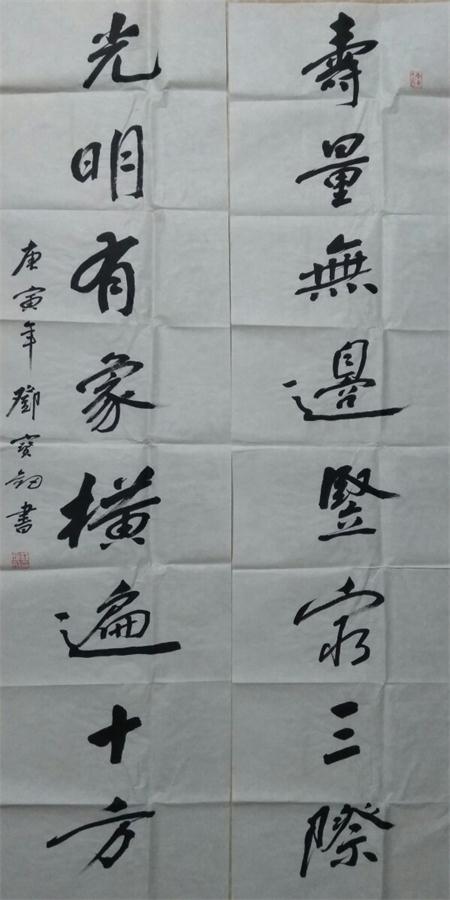 壽量無邊豎窮三際
光明有象橫遍十方
庚寅年鄧寶劍書